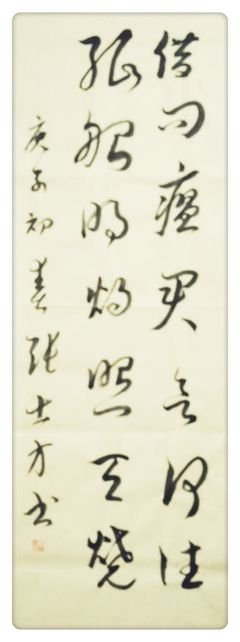 借问瘟君欲何往
纸船明烛照天烧
庚子初春张士方书